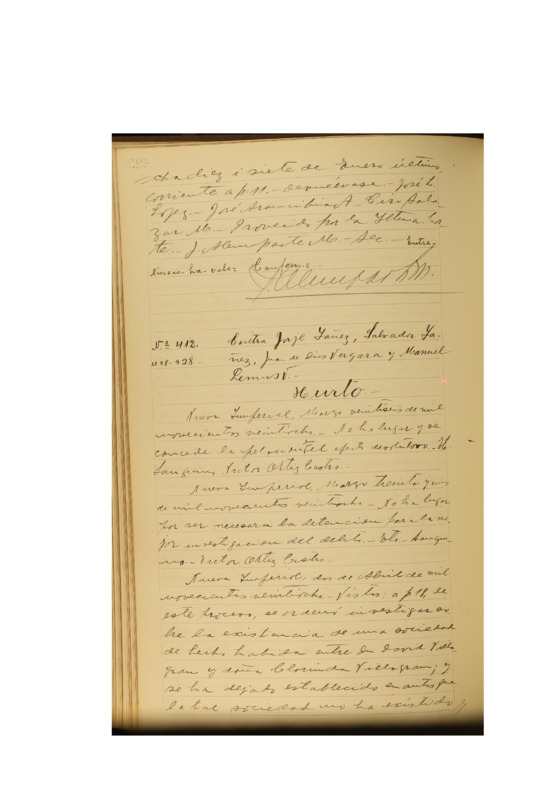 cha diez i siete de Enero último
corriente a p. 11.- devuélvase.- José L.
López.- José Arancibia A.- Ciro Sala
zar M.- Proveido por la Iltma. Cor
te.- J. Alemparte M.- Sec.- Entre
lineas- ha- vale= Conforme.-
Nº 412. Contra Jorje Yañez, Salvador Ya-
ñez, Juan de Dios Vergara y Manuel
Lemus V.-
Hurto-
Nueva Imperial, Marzo veintiseis de mil
novecientos veintiocho.- No ha lugar y se
concede la apelacion en el efecto devolutivo.-
Sanguino. Victor Ortiz Castro.-
Nueva Imperial, Marzo treinta y uno
de mil novecientos veintiocho.- No ha lugar
por ser necesaria la detencion para la me
jor investigacion del delito.- Sangui-
no- Victor Ortiz Castro.-
Nueva Imperial, dos de Abril de mil
novecientos veintiocho.- Vistos: a p 18, de
este proceso, se ordenó investigar so
bre la existencia de una sociedad
de hecho habida entre Dn David Villa
gran y doña Clorinda Villagran; y
se ha dejado establecido en autos que
la tal sociedad no ha existido